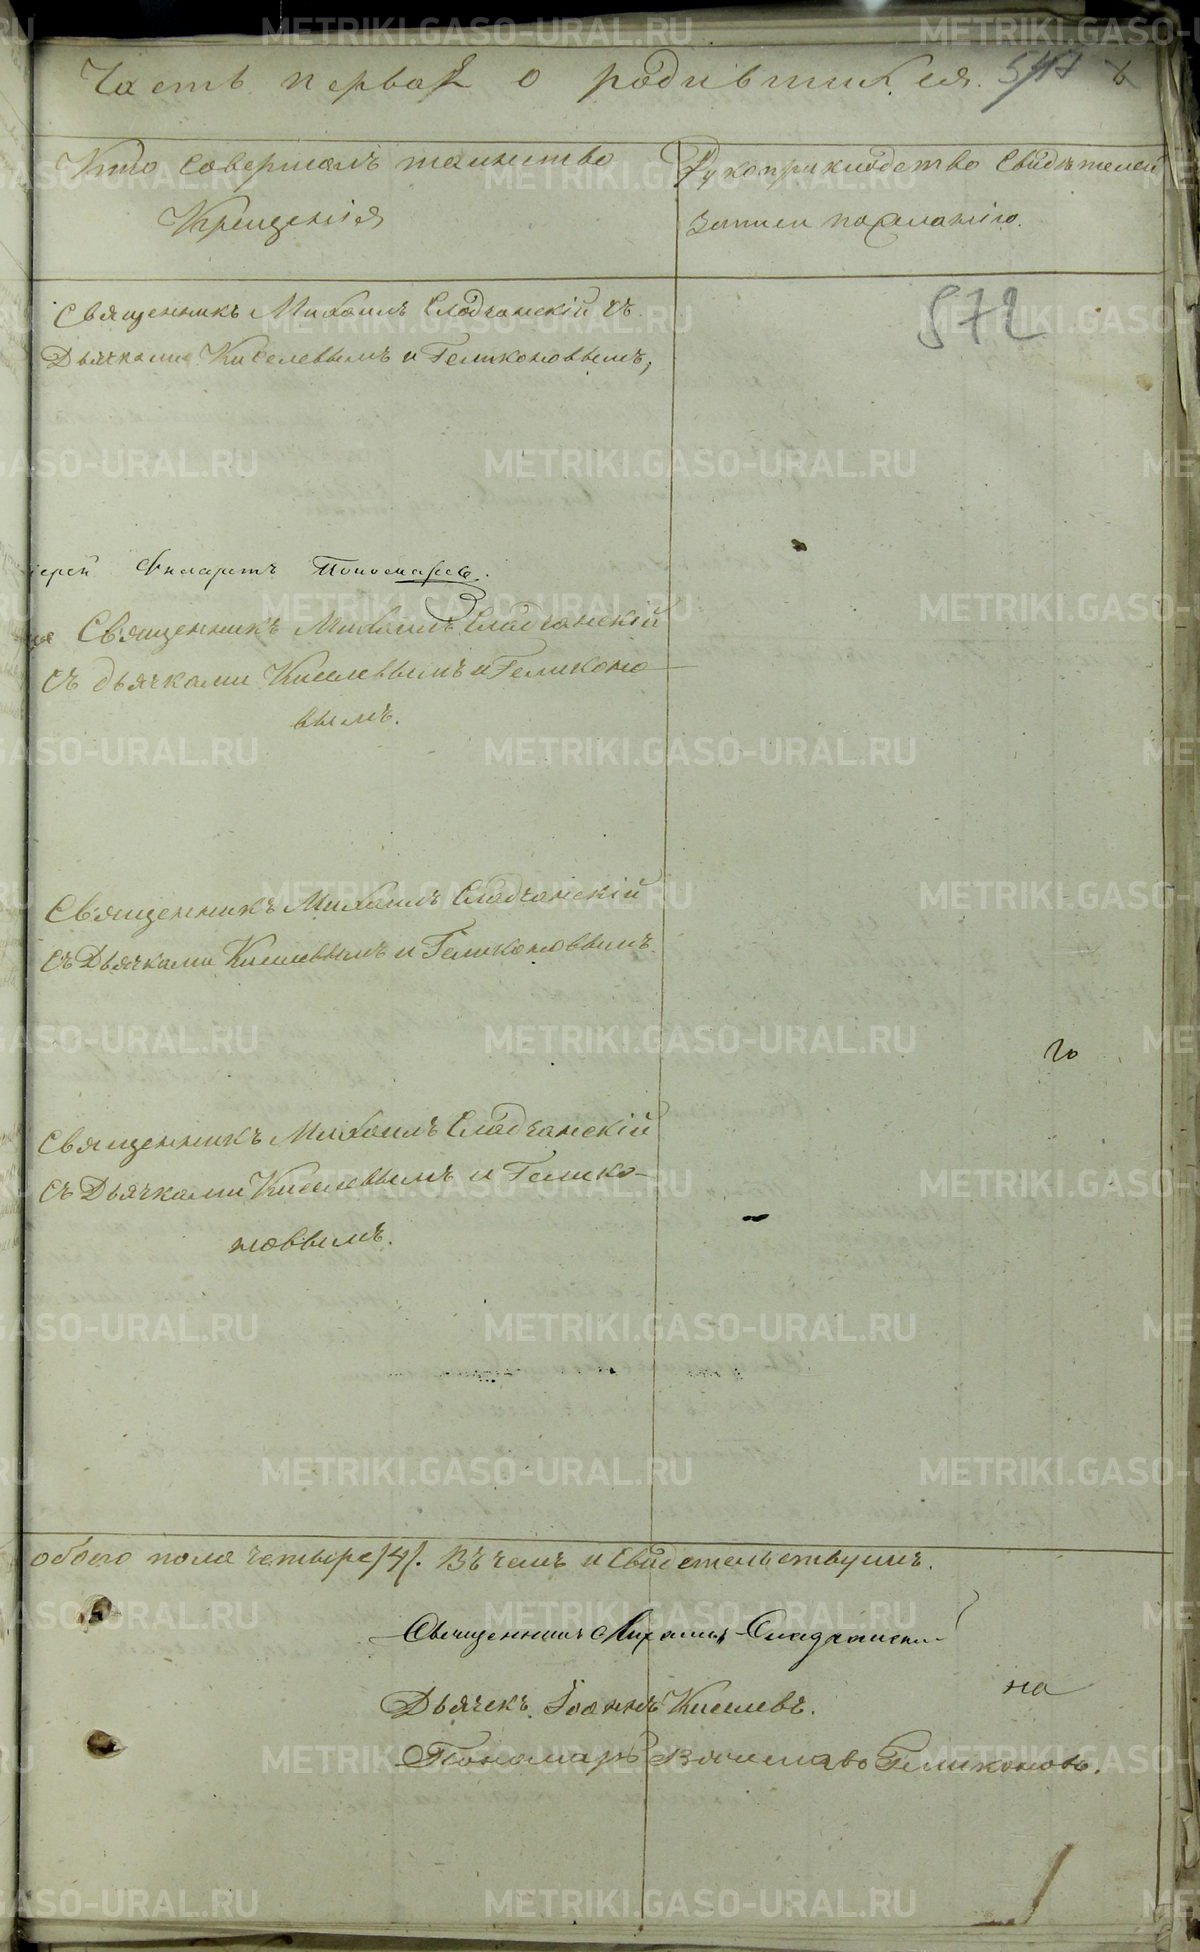 Часть первая о родившихся. 547
Кто совершалъ таинство
Крещенія
Рукоприкладство свидѣтелей
записи по желанію.
572
Священникъ Михаилъ Сладчанскій съ
Дьячками Киселевымъ и Геликоновымъ,
іерей Филаретъ Пономаревъ.
Священникъ Михаилъ Сладчанскій
съ дьячками Киселевымъ и Геликоно
вымъ.
Священникъ Михаилъ Сладчанскій
съ Дьячками Киселевымъ и Геликоновымъ.
го
Священникъ Михаилъ Сладчанскій
съ Дьячками Киселевымъ и Гелико-
новымъ.
обоего пола четыре /4/. Въ чемъ и свидетельствуимъ.
Священникъ Михаилъ Сладчанскій
на
Дьячекъ Іоаннъ Киселевъ.
Пономарь Вячеславъ Геликоновъ.
METRIKI.GASO-URAL.RU